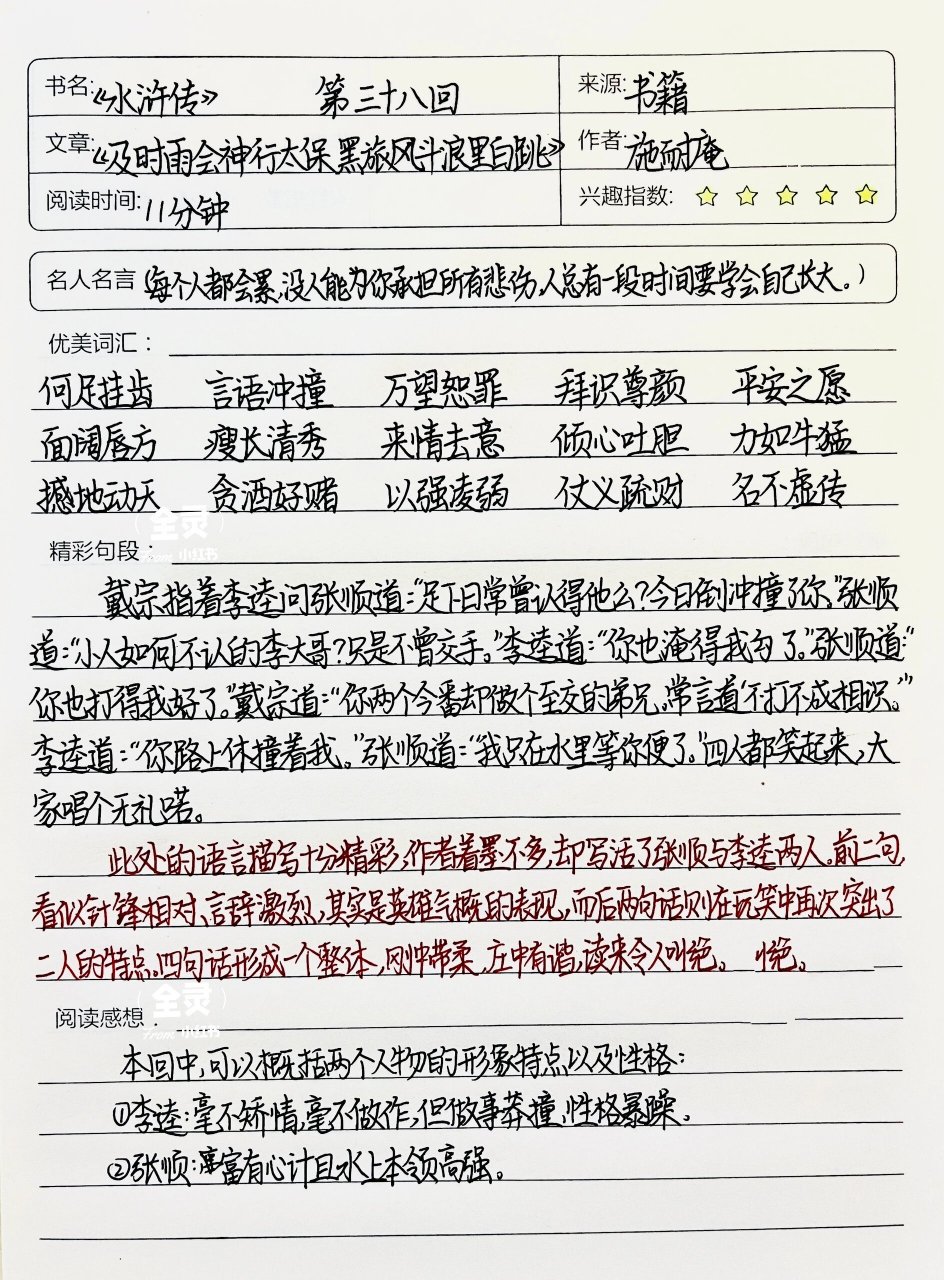 书名:《水浒传》 第三十八回 来源:书籍
文章:《及时雨会神行太保 黑旅风斗浪里白跳》 作者:施耐庵
阅读时间:11分钟 兴趣指数:
名人名言(每个人都会累,没人能为你承担所有悲伤,人总有一段时间要学会自己长大。)
优美词汇:
何足挂齿 言语冲撞 万望恕罪 拜识尊颜 平安之愿
面阔唇方 瘦长清秀 来情去意 倾心吐胆 力如牛猛
撼地动天 贪酒好赌 以强凌弱 仗义疏财 名不虚传
全灵
from 小红书
精彩句段:
戴宗指着李逵问张顺道:“足下日常曾认得他么?今日倒冲撞了你。”张顺
道:“小人如何不认的李大哥?只是不曾交手。”李逵道:“你也淹得我勾了。”张顺道:“
你也打得我好了。”戴宗道:“你两个今番却做个至交的弟兄。常言道‘不打不成相识。’”
李逵道:“你路上休撞着我。”张顺道:“我只在水里等你便了。”四人都笑起来,大
家唱个无礼喏。
此处的语言描写十分精彩,作者着墨不多,却写活了张顺与李逵两人。前二句,
看似针锋相对、言辞激烈,其实是英雄气概的表现,而后两句话则在玩笑中再次突出了
二人的特点。四句话形成一个整体,刚中带柔,庄中有谐,读来令人叫绝。 绝。
全灵
from 小红书
阅读感想:
本回中,可以概括两个人物的形象特点以及性格:
①李逵:毫不矫情,毫不做作,但做事莽撞,性格暴躁。
②张顺:富有心计且水上本领高强。